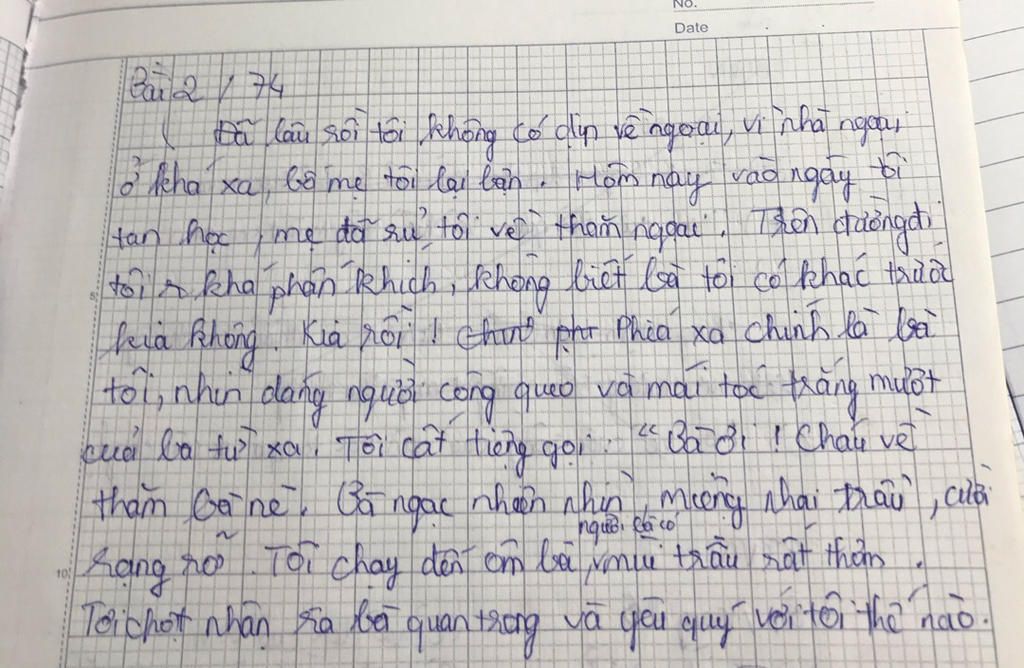 No.
Date
Bài 2 / 74
Đã lâu rồi tôi không có dịp về ngoại, vì nhà ngoại
ở khá xa, bố mẹ tôi lại bận. Hôm nay vào ngày tôi
tan học, mẹ đã rủ tôi về thăm ngoại. Trên đường đi
tôi khá phấn khích, không biết bà tôi có khác trước
kia không. Kia rồi! Phía xa chính là bà
tôi, nhìn dáng người cong queo và mái tóc trắng mướt
của bà từ xa. Tôi cất tiếng gọi: "Bà ơi! Cháu về
thăm bà nè. Bà ngạc nhiên nhìn, miệng nhai trầu, cười
người bà có
10 rạng rỡ. Tôi chạy đến ôm bà, mùi trầu rất thơm.
Tôi chợt nhận ra bà quan trọng và yêu quý với tôi thế nào.